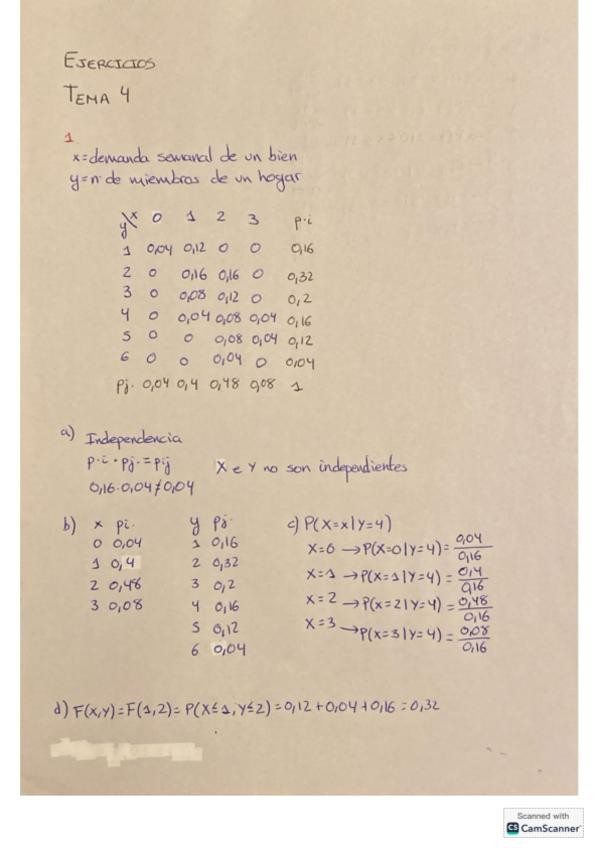 EJERCICIOS
TEMA 4
1
x=demanda semanal de un bien
y=nº de miembros de un hogar
y\x 0 1 2 3 p·i
1 0,04 0,12 0 0 0,16
2 0 0,16 0,16 0 0,32
3 0 0,08 0,12 0 0,2
4 0 0,04 0,08 0,04 0,16
5 0 0 0,08 0,04 0,12
6 0 0 0,04 0 0,04
Pj. 0,04 0,4 0,48 0,08 1
a) Independencia
p·i · pj· = pij X e Y no son independientes
0,16·0,04≠0,04
b) x pi. y pj.
0 0,04 1 0,16
1 0,4 2 0,32
2 0,48 3 0,2
3 0,08 4 0,16
5 0,12
6 0,04
c) P(X=x|Y=4)
X=0 → P(X=0|Y=4)= 0,04/0,16
X=1 → P(X=1|Y=4)= 0,4/0,16
X=2 → P(X=2|Y=4)= 0,48/0,16
X=3 → P(X=3|Y=4)= 0,08/0,16
d) F(x,y)=F(1,2)= P(X≤1,Y≤2)=0,12+0,04+0,16=0,32
Scanned with
CS CamScanner